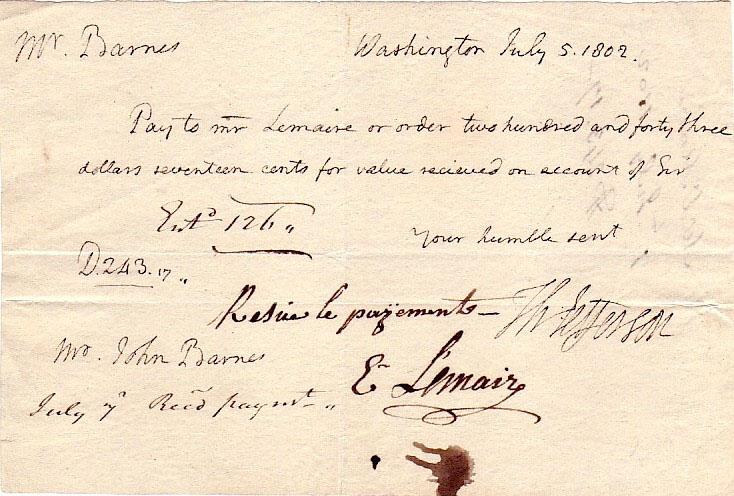 Mr. Barnes
Washington July 5. 1802.
Pay to mr Lemaire or order two hundred and forty three
dollars seventeen cents for value recieved on account of Sir
Entd 126 "
Your humble servt
D. 243.17 "
Th Jefferson
Resue le payements —
Mr. John Barnes
E Lemaire
July 7 Recd paymt "